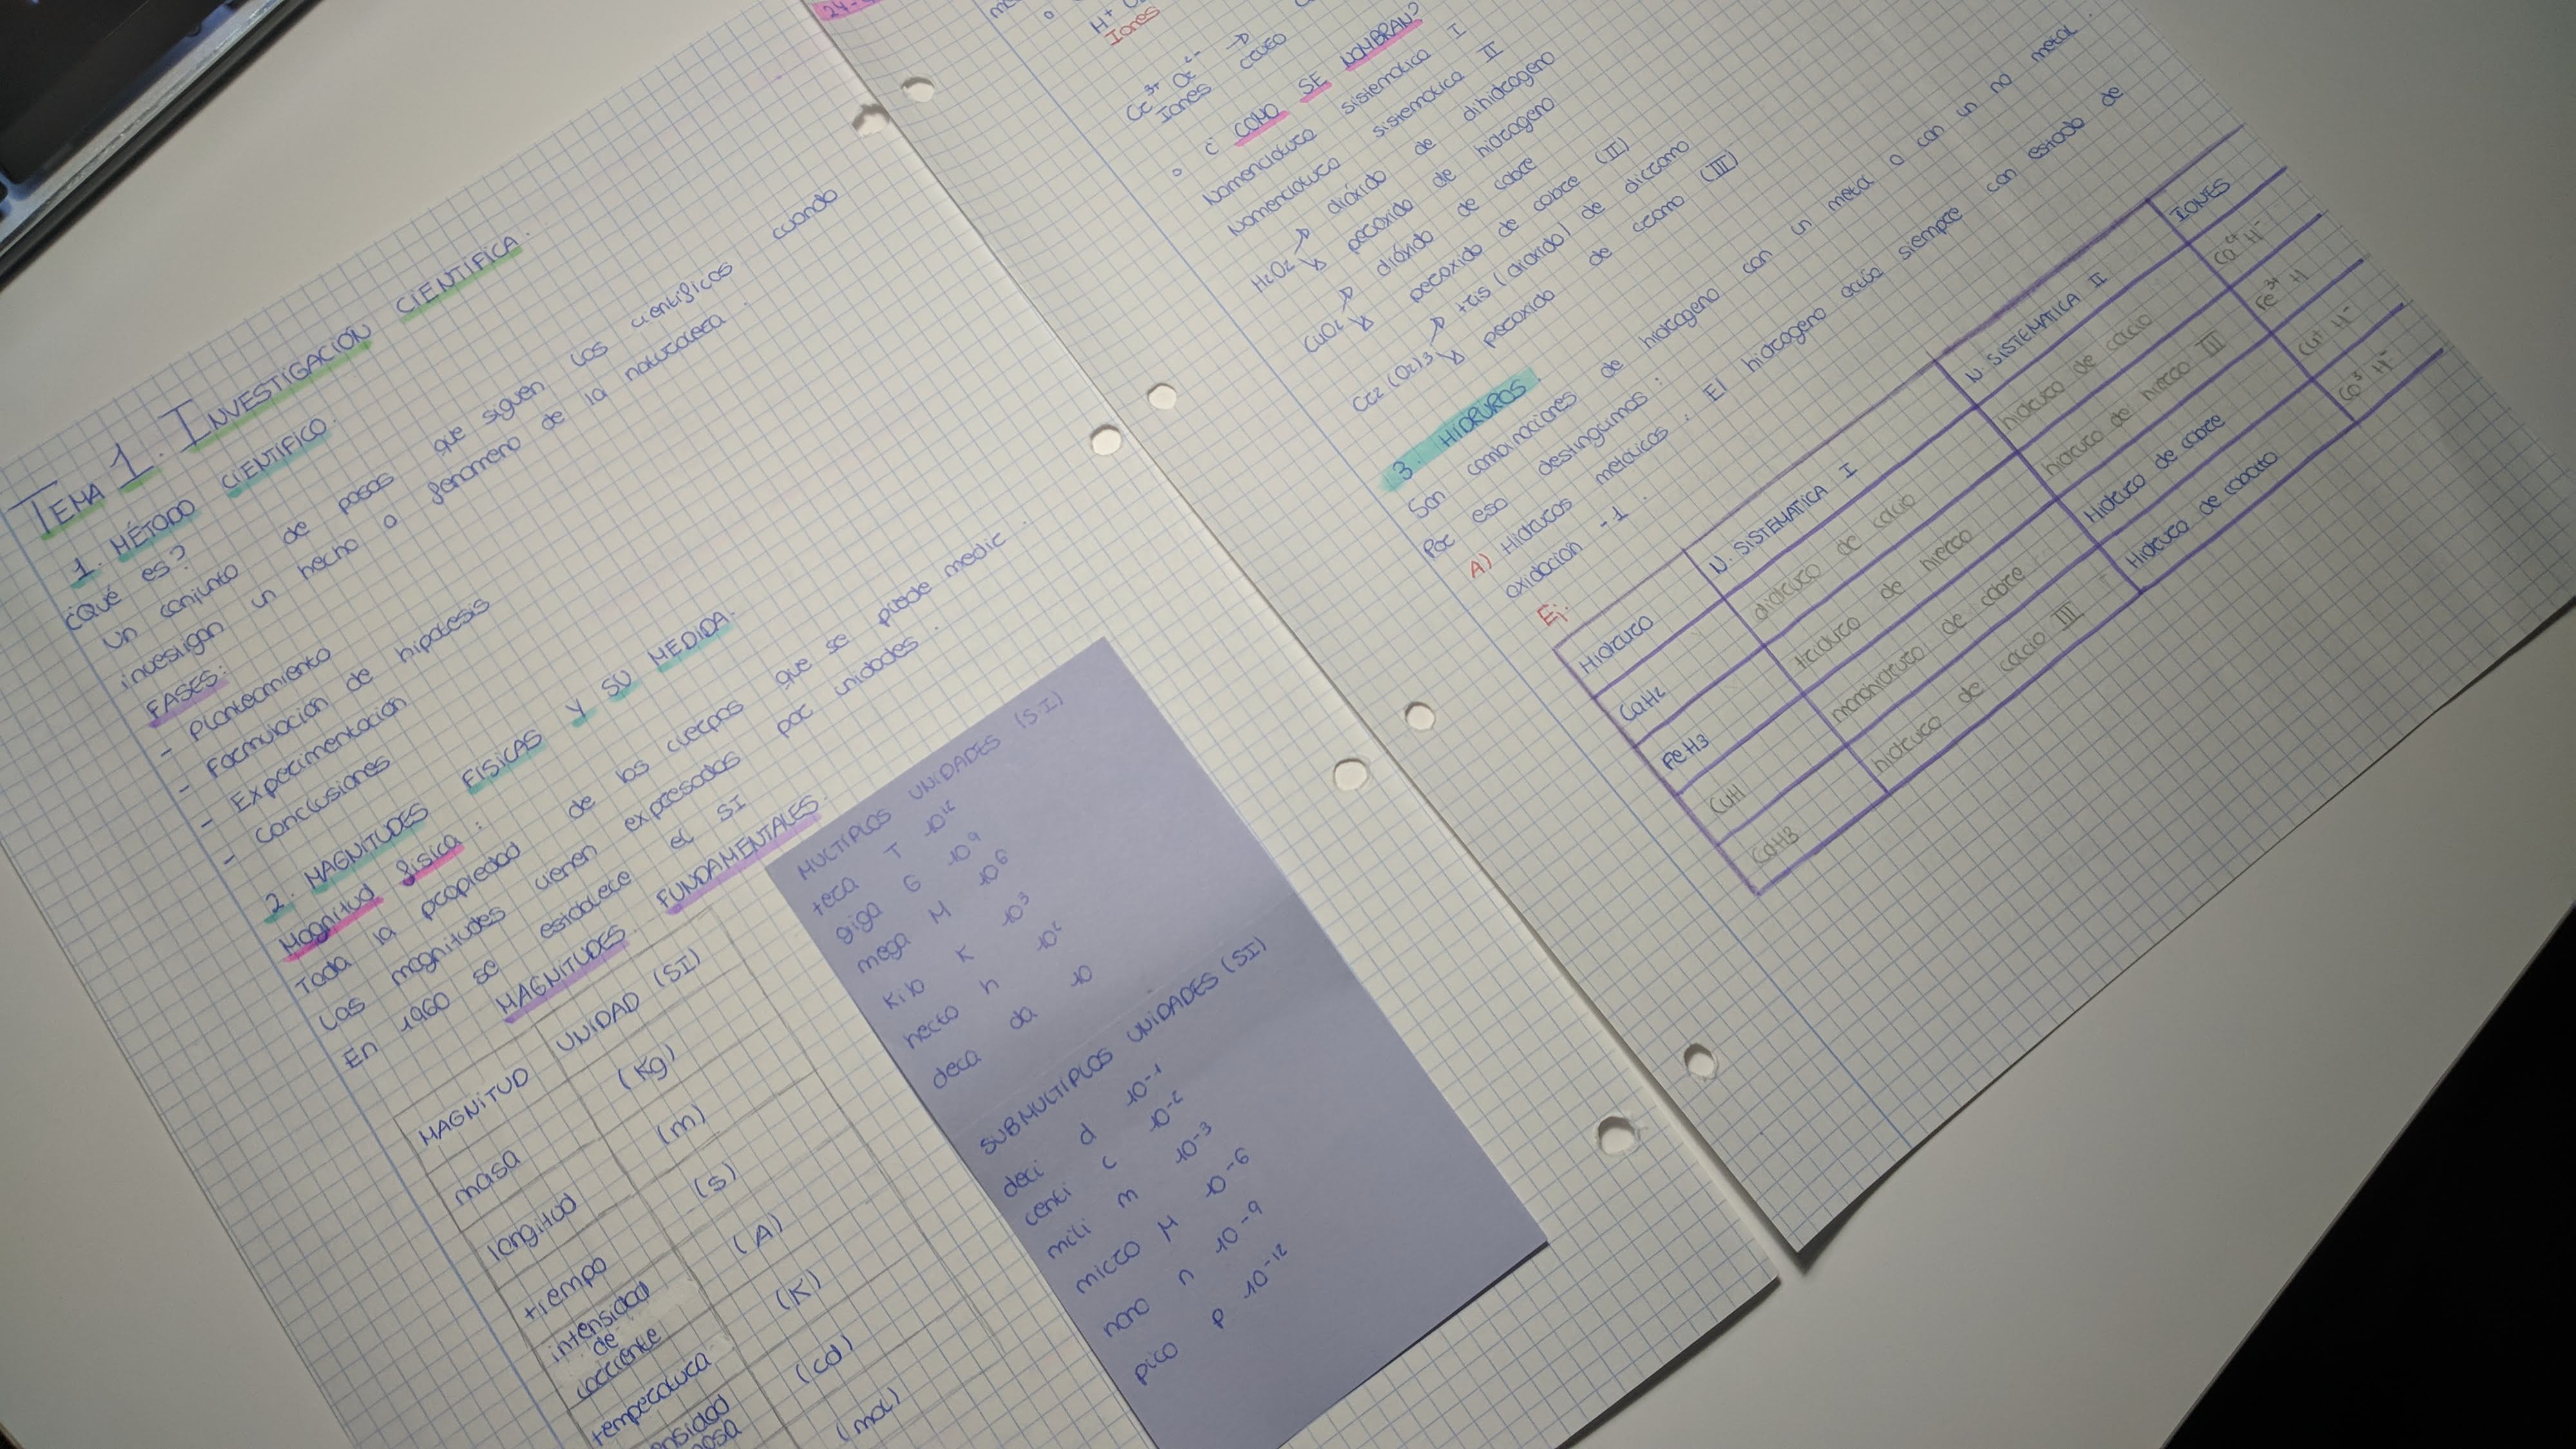 TEMA 1. INVESTIGACIÓN CIENTÍFICA.
1. MÉTODO CIENTIFICO.
¿Qué es?
Un conjunto de pasos que siguen los cientificos cuando
investigan un hecho o fenomeno de la naturaleza.
FASES:
- Planteamiento
- Formulación de hipotesis
- Experimentacion
- Conclusiones
2. MAGNITUDES FISICAS Y SU MEDIDA.
Magnitud fisica:
Toda la propiedad de los cuerpos que se puede medir.
Las magnitudes vienen expresadas por unidades.
En 1960 se establece el SI
MAGNITUDES FUNDAMENTALES.
MAGNITUD UNIDAD (SI)
masa (Kg)
longitud (m)
tiempo (s)
intensidad de corriente (A)
temperatura (K)
(cd)
(mol)
MULTIPLOS UNIDADES (SI)
tera T 10¹²
giga G 10⁹
mega M 10⁶
Kilo K 10³
hecto h 10²
deca da 10
SUBMULTIPLOS UNIDADES (SI)
deci d 10⁻¹
centi c 10⁻²
mili m 10⁻³
micro μ 10⁻⁶
nano n 10⁻⁹
pico p 10⁻¹²
Iones
Iones
¿ COMO SE NOMBRAN?
Nomenclatura sistematica I
Nomenclatura sistematica II
H2O2 → dióxido de dihidrogeno
↘ peroxido de hidrogeno
CuO2 → dióxido de cobre
↘ peroxido de cobre (II)
Cr2(O2)3 → tris (dioxido) de dicromo
↘ peroxido de cromo (III)
3. HIDRUROS.
Son combinaciones de hidrogeno con un metal o con un no metal.
Por eso destingumos:
A) Hidruros metalicos: El hidrogeno actúa siempre con estado de
oxidacion -1.
Ej:
Hidruro N. SISTEMATICA I N SISTEMATICA II IONES
CaH2 dihidruro de calcio hidruro de calcio Ca²⁺ H⁻
FeH3 trihidruro de hierro hidruro de hierro III Fe³⁺ H
CuH monohidruro de cobre Hidruro de cobre Cu⁺ H⁻
CoH3 hidruro de calcio III Hidruro de cobalto Co³ H⁻